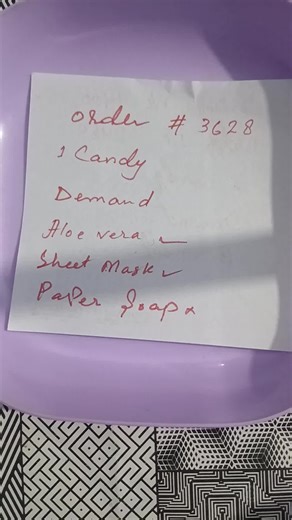 order # 3628
1 Candy
Demand
Aloe vera ✓
Sheet Mask ✓
Paper Soap x